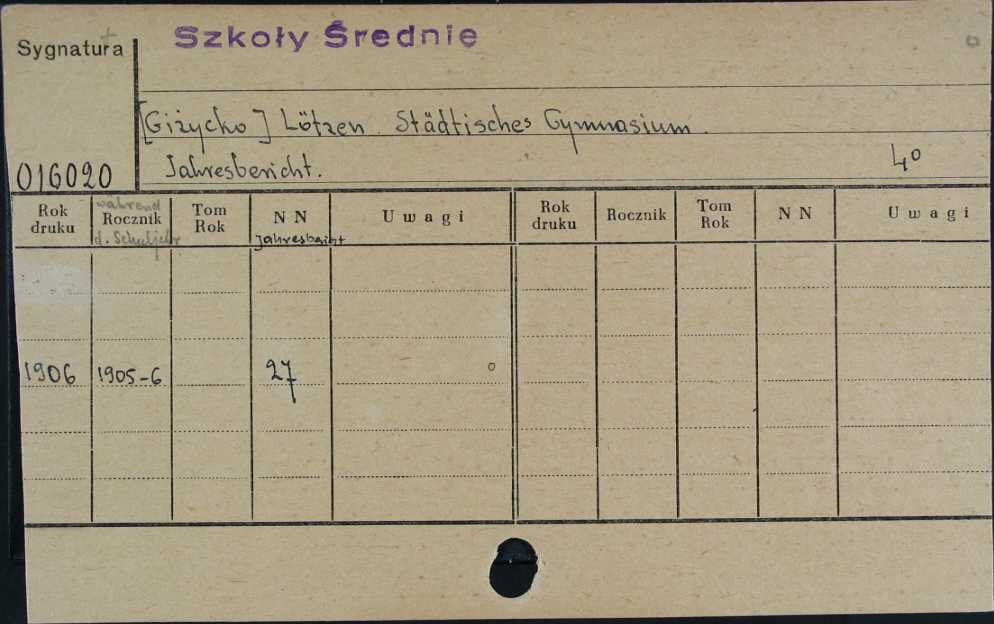 Szkoły Średnie
Sygnatura
[Giżycko] Lötzen. Städtisches Gymnasium.
Jahresbericht. 4°
016020
Rok druku während Rocznik d. Schuljahr Tom Rok NN Jahresbericht Uwagi Rok druku Rocznik Tom Rok NN Uwagi
1906 1905-6 27 o